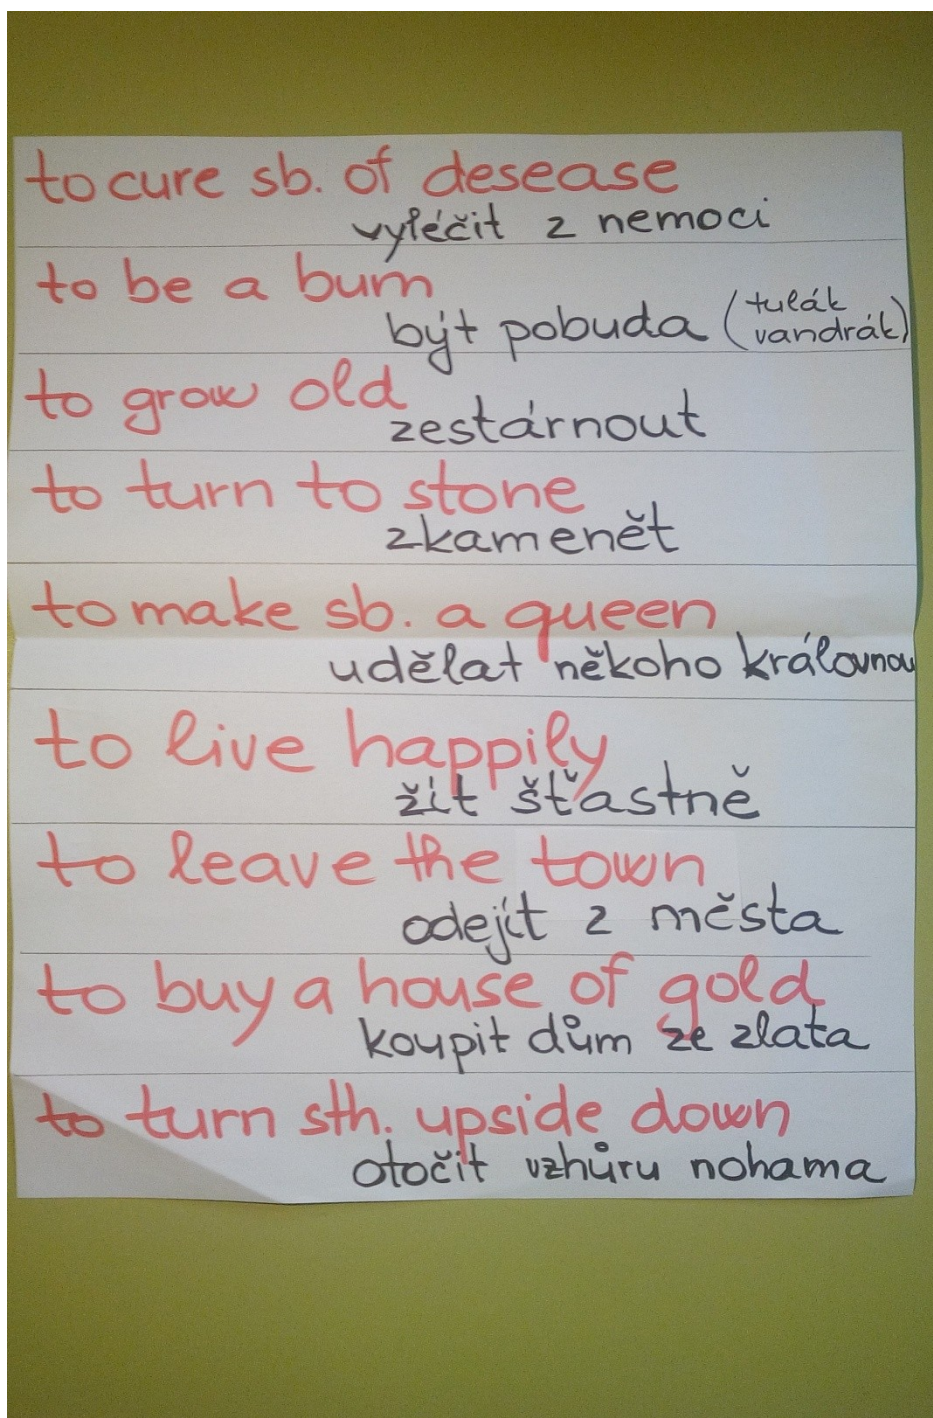 to cure sb. of desease
vyléčit z nemoci
to be a bum
být pobuda (tulák
vandrák)
to grow old
zestárnout
to turn to stone
zkamenět
to make sb. a queen
udělat někoho královnou
to live happily
žít šťastně
to leave the town
odejít z města
to buy a house of gold
koupit dům ze zlata
to turn sth. upside down
otočit vzhůru nohama